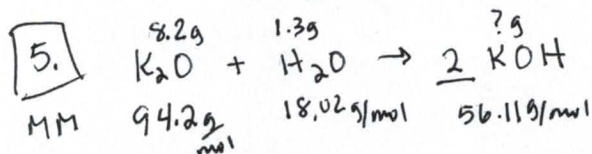 8.2g 1.3g ?g
5. K₂O + H₂O → 2 KOH
MM 94.2 g/mol 18.02 g/mol 56.11 g/mol